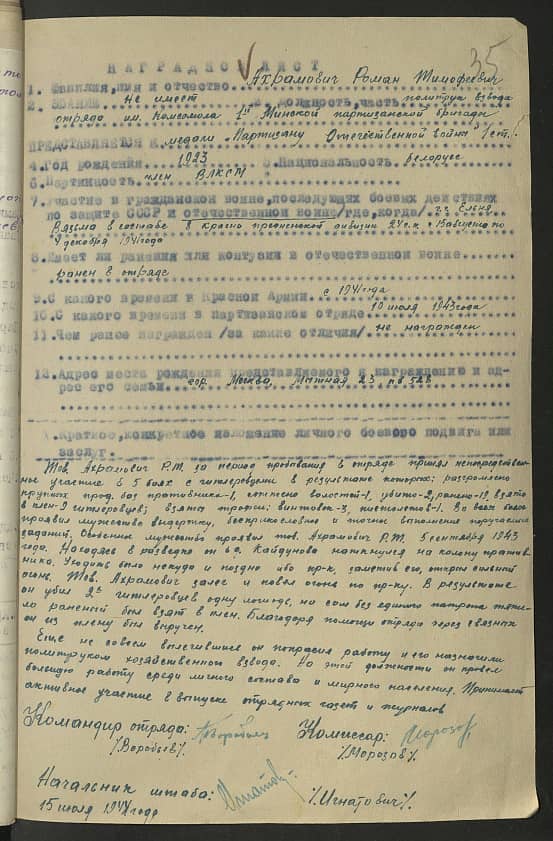 35
НАГРАДНОЙ ЛИСТ
1. Фамилия, имя и отчество Ахрамович Роман Тимофеевич
2. Звание не имеет 3. Должность, часть политрук взвода
отряда им. Комсомола 1й Минской партизанской бригады
ПРЕДСТАВЛЯЕТСЯ К медали "Партизану Отечественной войны" 1 ст.
4. Год рождения 1923 5. Национальность белорус
6. Партийность член ВЛКСМ
7. Участие в гражданской войне, последующих боевых действиях
по защите СССР и отечественной войне /где, когда/ Ельня
Вязьма в составе 8 Красно пресненской дивизии
4 декабря 1941 года
8. Имеет ли ранения или контузии в отечественной войне
ранен в отряде
9. С какого времени в Красной Армии с 1941 года
10. С какого времени в партизанском отряде 10 июля 1943 года
11. Чем ранее награжден /за какие отличия/ не награжден
12. Адрес места рождения представляемого к награждению и ад-
рес его семьи гор. Москва, Мытная 23 кв 528
1. Краткое, конкретное изложение личного боевого подвига или
заслуг.
Тов. Ахрамович Р.Т. за период пребывания в отряде принял непосредствен-
ное участие в 5 боях с гитлеровцами в результате которых: разгромлено
крупных прод. баз противника-1, сожжено волостей-1, убито-2, ранено-19, взято
в плен-9 гитлеровцев; взяты трофеи: винтовок-3, пистолетов-1. Во всех боях
проявил мужество выдержку, беспрекословно и точно выполнял поручаемые
задания. Особенно мужество проявил тов. Ахрамович Р.Т. 5 сентября 1943
года. Находясь в разведке он в д. Кайдуново наткнулся на колону против-
ника. Уходить было некуда и поздно ибо пр-к, заметив его, открыл сильный
огонь. Тов. Ахрамович залег и повел огонь по пр-ку. В результате
он убил 2х гитлеровцев одну лошадь, но сам без единого патрона тяже-
ло раненый был взят в плен. Благодаря помощи отряда через связных
он из плену был выручен.
Еще не совсем вылечившись он попросил работу и его назначили
политруком хозяйственного взвода. На этой должности он провел
большую работу среди личного состава и мирного населения. Принимает
активное участие в выпуске отрядных газет и журналов
Командир отряда: Комиссар:
/Воробьев/ /Морозов/
Начальник штаба: /Игнатович/
15 июля 1944 года